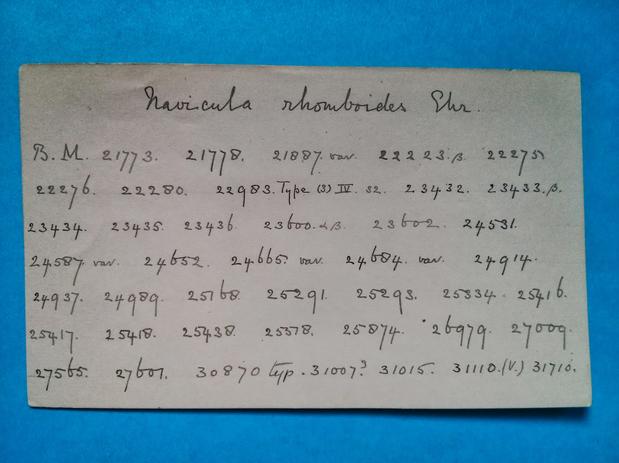 Navicula rhomboides Ehr.
B.M. 21773. 21778. 21887. var. 22223.β 22275
22276. 22280. 22983. Type (3) IV. 52. 23432. 23433.β.
23434. 23435. 23436. 23600.αβ. 23602. 24531.
24587 var. 24652. 24665. var. 24684. var. 24914.
24937. 24989. 25168. 25291. 25293. 25334. 25416.
25417. 25418. 25438. 25578. 25874. 26979. 27009.
27565. 27601. 30870 typ. 31007? 31015. 31110.(V.) 31710.